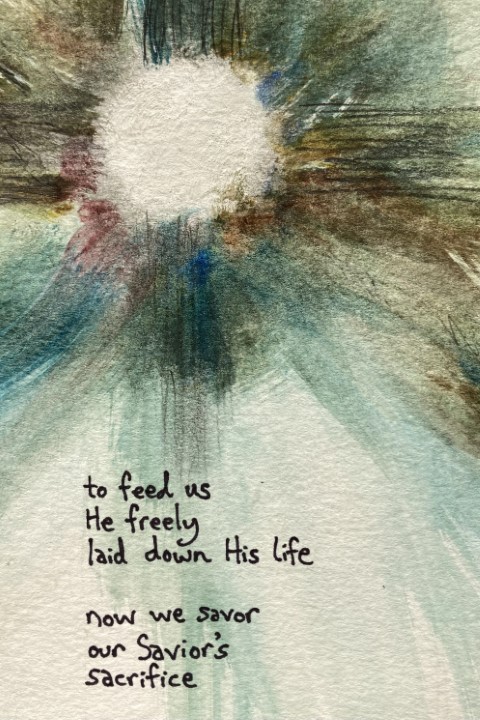 to feed us
He freely
laid down His life
now we savor
our Savior's
sacrifice